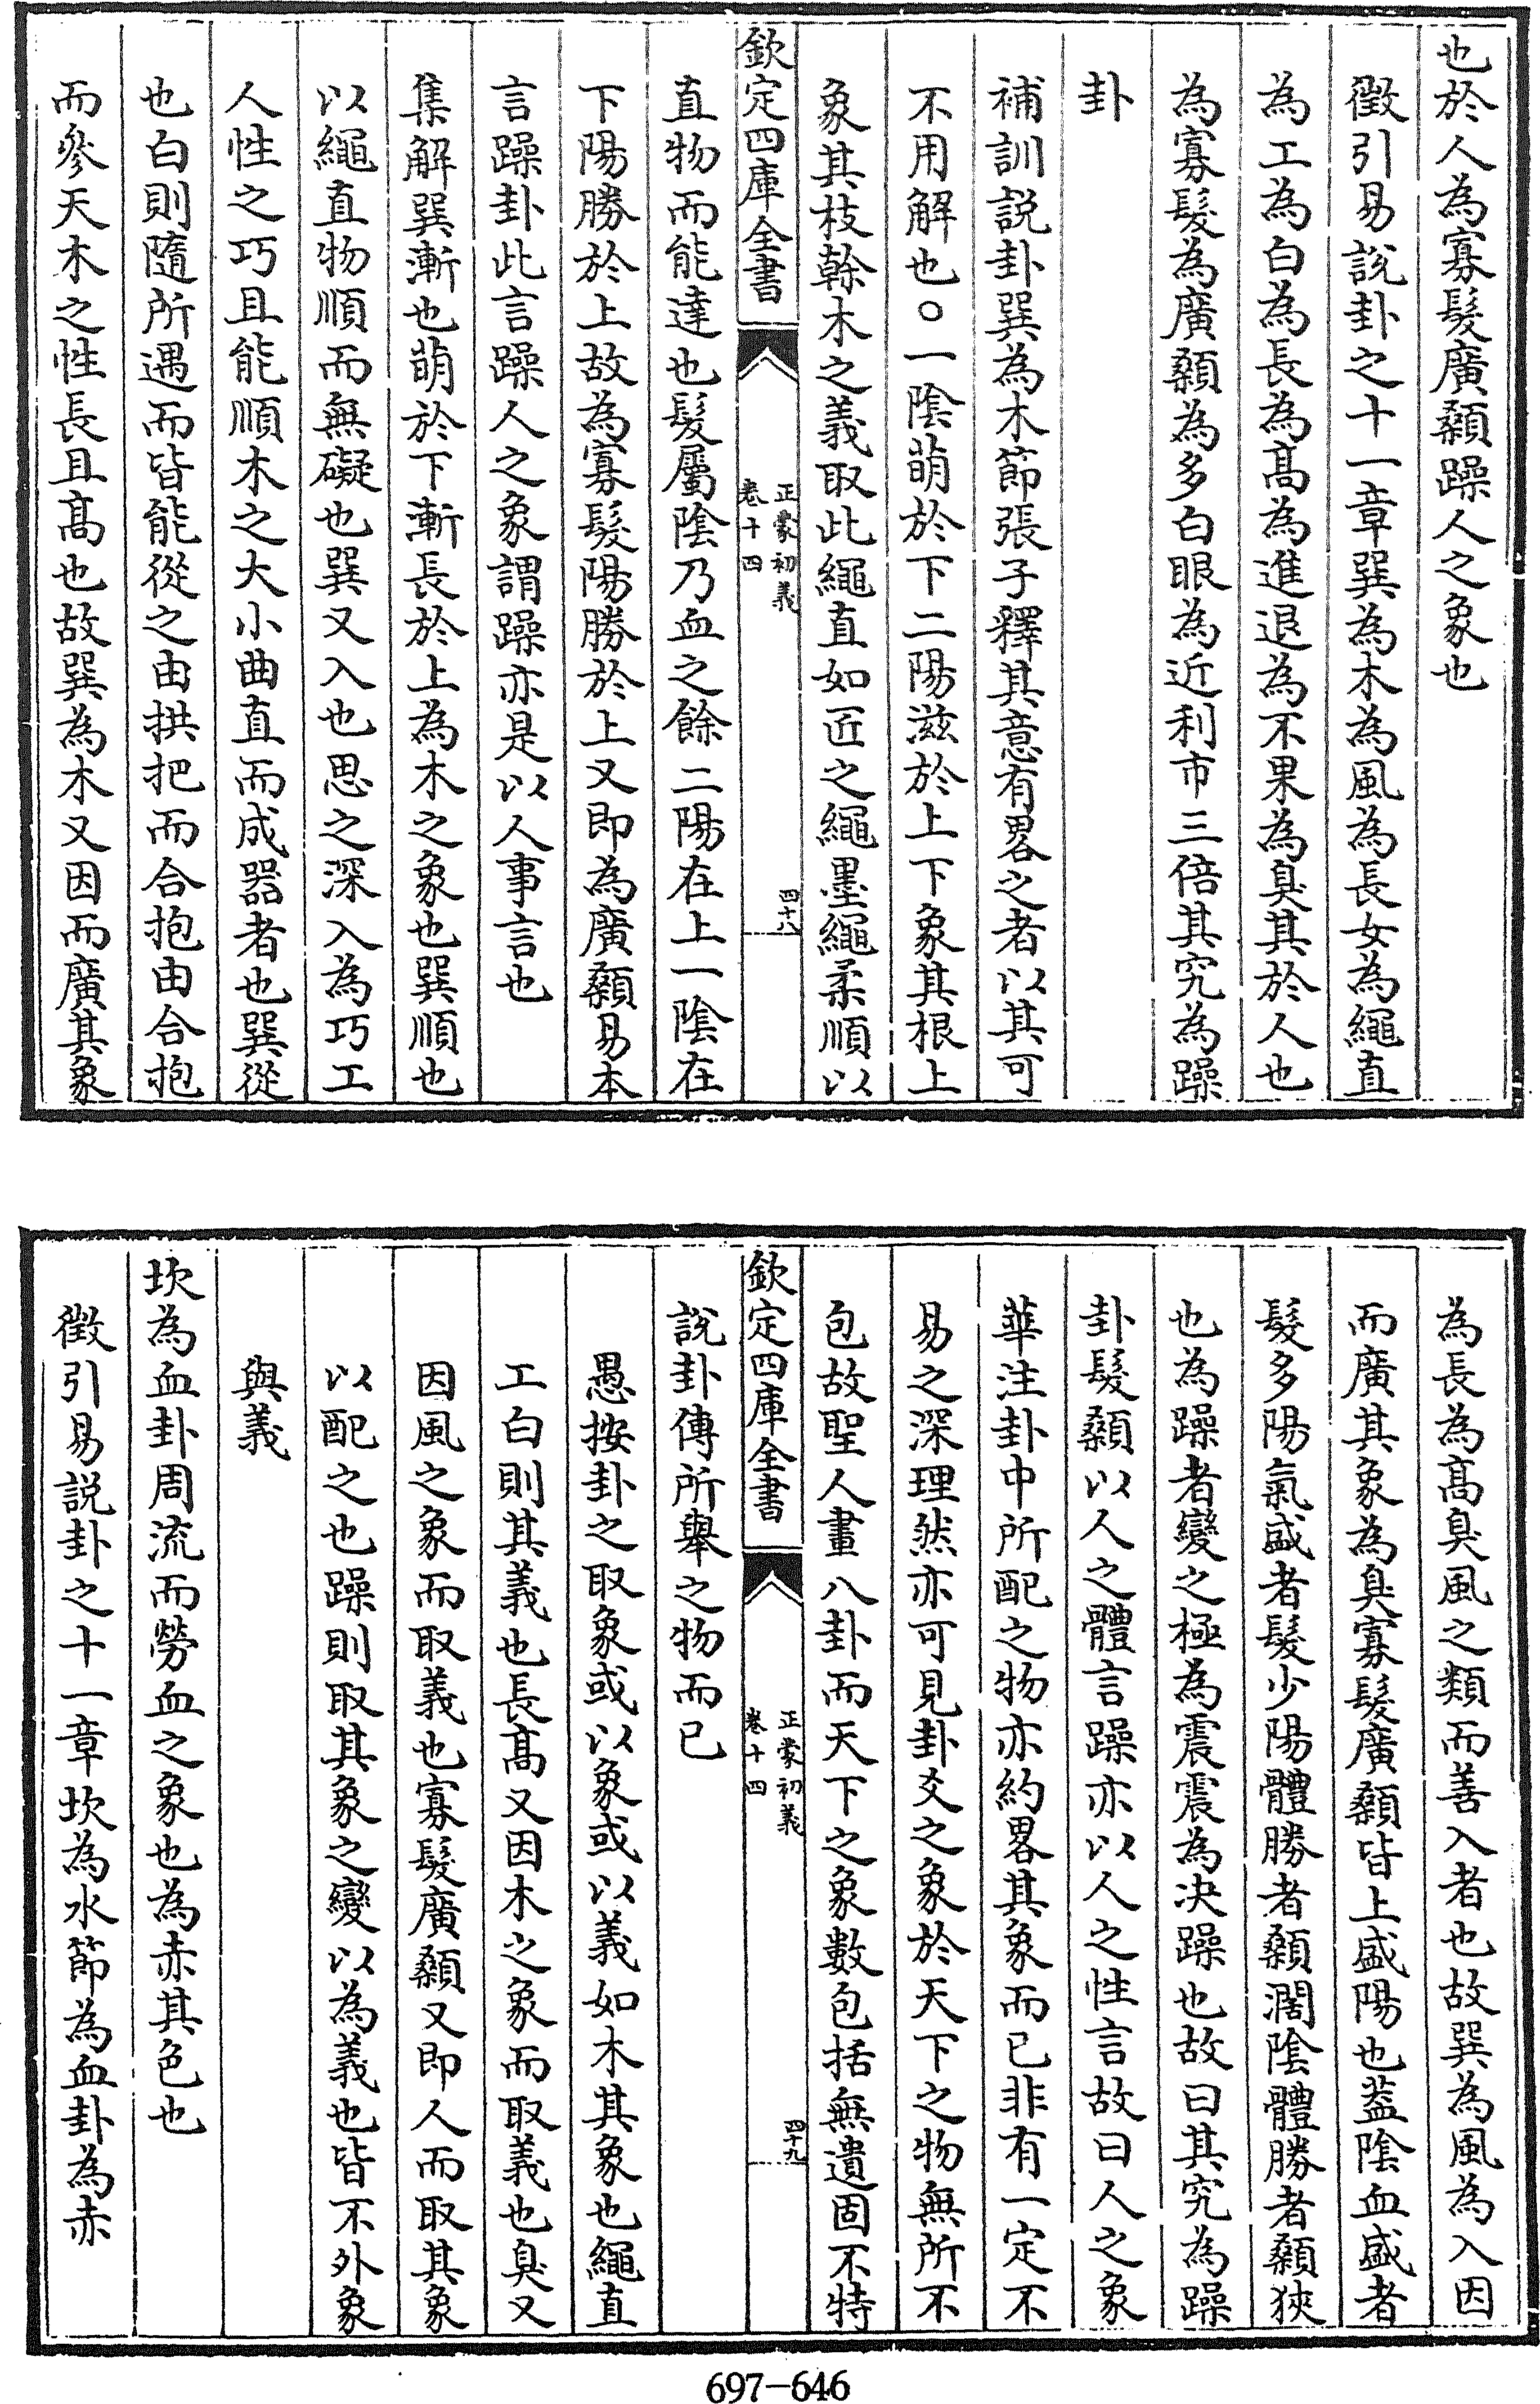 也於人為寡髮廣顙躁人之象也
徵引易說卦之十一章巽為木為風為長女為繩直
為工為白為長為髙為進退為不果為臭其於人也
為寡髮為廣顙為多白眼為近利市三倍其究為躁
卦
補訓説卦巽為木節張子釋其意有畧之者以其可
不用解也○一陰萌於下二陽滋於上下象其根上
象其枝榦木之義取此繩直如匠之繩墨繩柔順以
欽定四庫全書
正蒙初義
卷十四
四十八
直物而能達也髮屬陰乃血之餘二陽在上一陰在
下陽勝於上故為寡髮陽勝於上又即為廣顙易本
言躁卦此言躁人之象謂躁亦是以人事言也
集解巽漸也萌於下漸長於上為木之象也巽順也
以繩直物順而無礙也巽又入也思之深入為巧工
人性之巧且能順木之大小曲直而成器者也巽從
也白則隨所遇而皆能從之由拱把而合抱由合抱
而參天木之性長且髙也故巽為木又因而廣其象
為長為髙臭風之類而善入者也故巽為風為入因
而廣其象為臭寡髮廣顙皆上盛陽也葢陰血盛者
髮多陽氣盛者髮少陽體勝者顙濶陰體勝者顙狹
也為躁者變之極為震震為决躁也故曰其究為躁
卦髮顙以人之體言躁亦以人之性言故曰人之象
華注卦中所配之物亦約畧其象而已非有一定不
易之深理然亦可見卦爻之象於天下之物無所不
包故聖人畫八卦而天下之象數包括無遺固不特
欽定四庫全書
正蒙初義
卷十四
四十九
說卦傳所舉之物而已
愚按卦之取象或以象或以義如木其象也繩直
工白則其義也長髙又因木之象而取義也臭又
因風之象而取義也寡髮廣顙又即人而取其象
以配之也躁則取其象之變以為義也皆不外象
與義
坎為血卦周流而勞血之象也為赤其色也
徵引易説卦之十一章坎為水節為血卦為赤
697-646